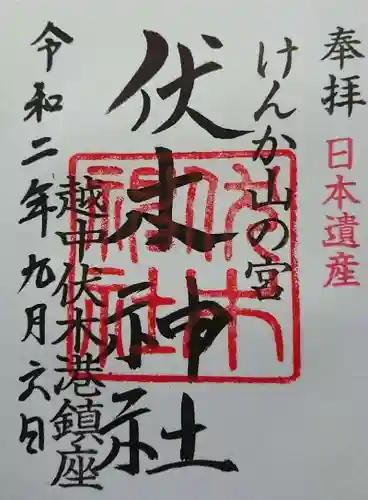 奉拝 日本遺産
けんか山の宮
伏木神社
伏木神社
越中伏木港鎮座
令和二年九月六日